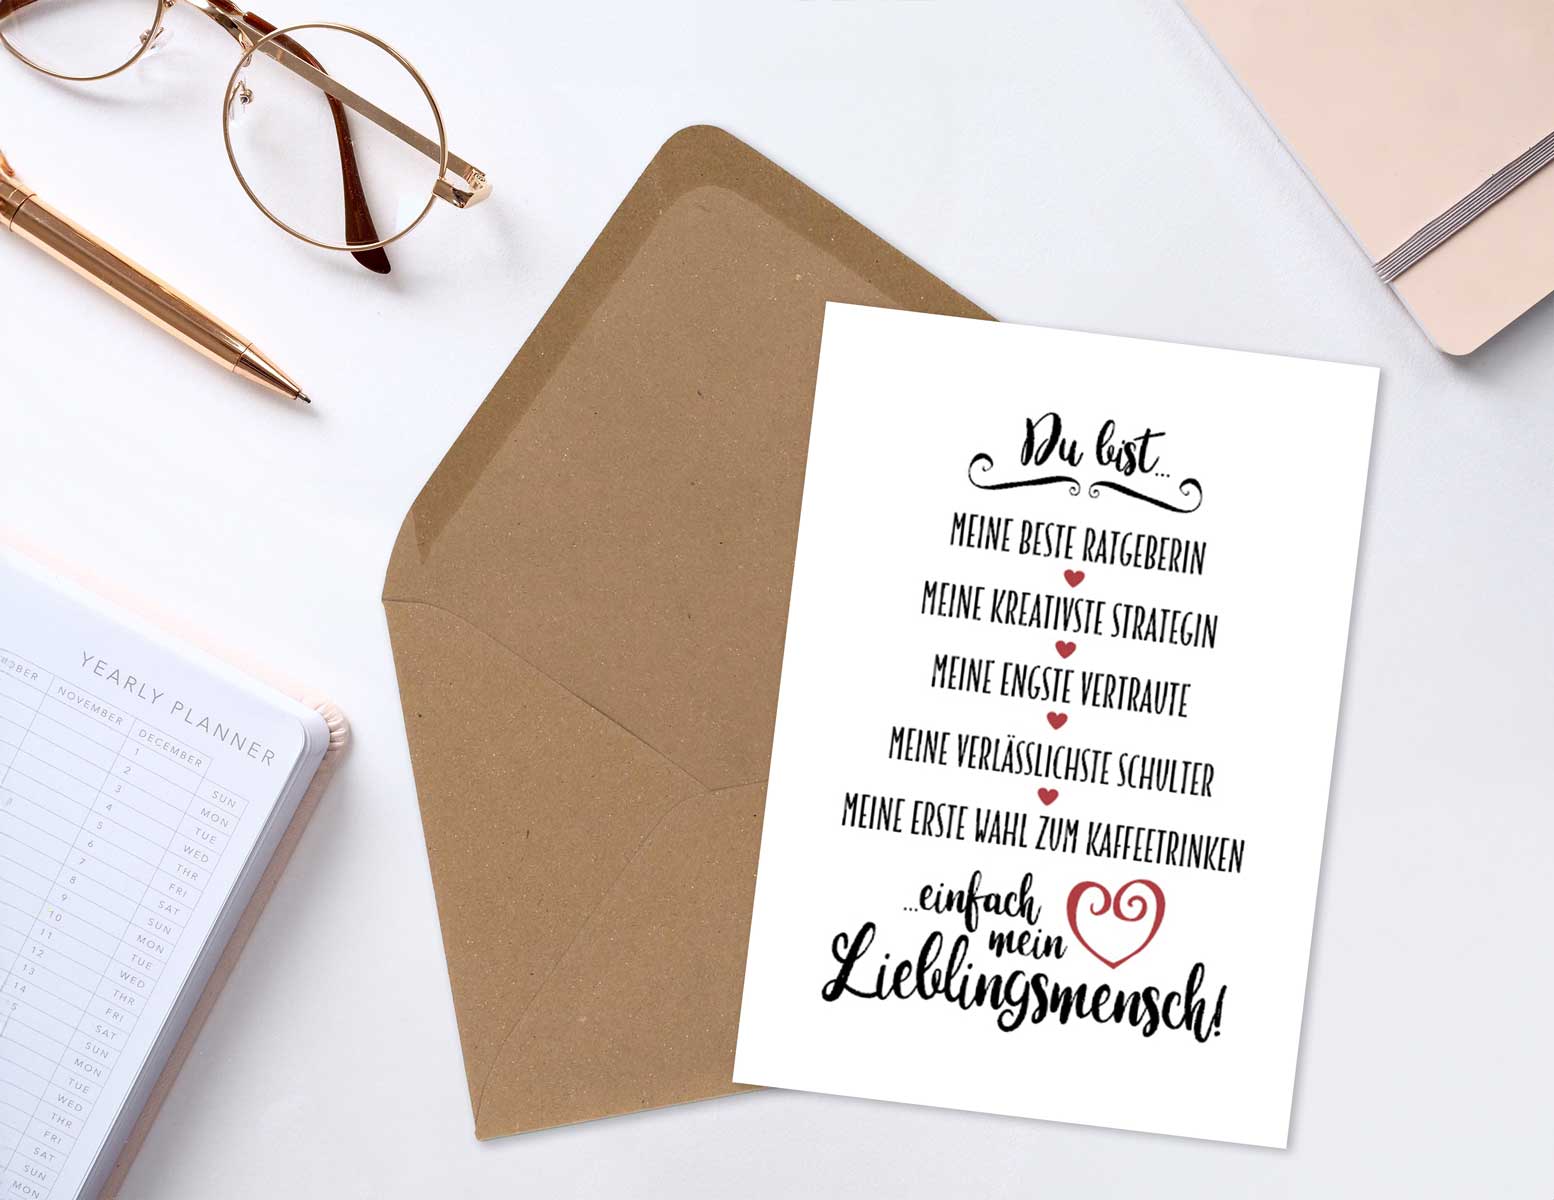 Du bist...
MEINE BESTE RATGEBERIN
MEINE KREATIVSTE STRATEGIN
MEINE ENGSTE VERTRAUTE
MEINE VERLÄSSLICHSTE SCHULTER
MEINE ERSTE WAHL ZUM KAFFEETRINKEN
...einfach
mein
Lieblingsmensch!
YEARLY PLANNER
NOVEMBER DECEMBER
1 SUN
2 MON
3 TUE
4 WED
5 THR
6 FRI
7 SAT
8 SUN
9 MON
10 TUE
11 WED
12 THR
13 FRI
14 SAT
SUN
MON
TUE
WED
THR
FRI
SAT
SUN
MON